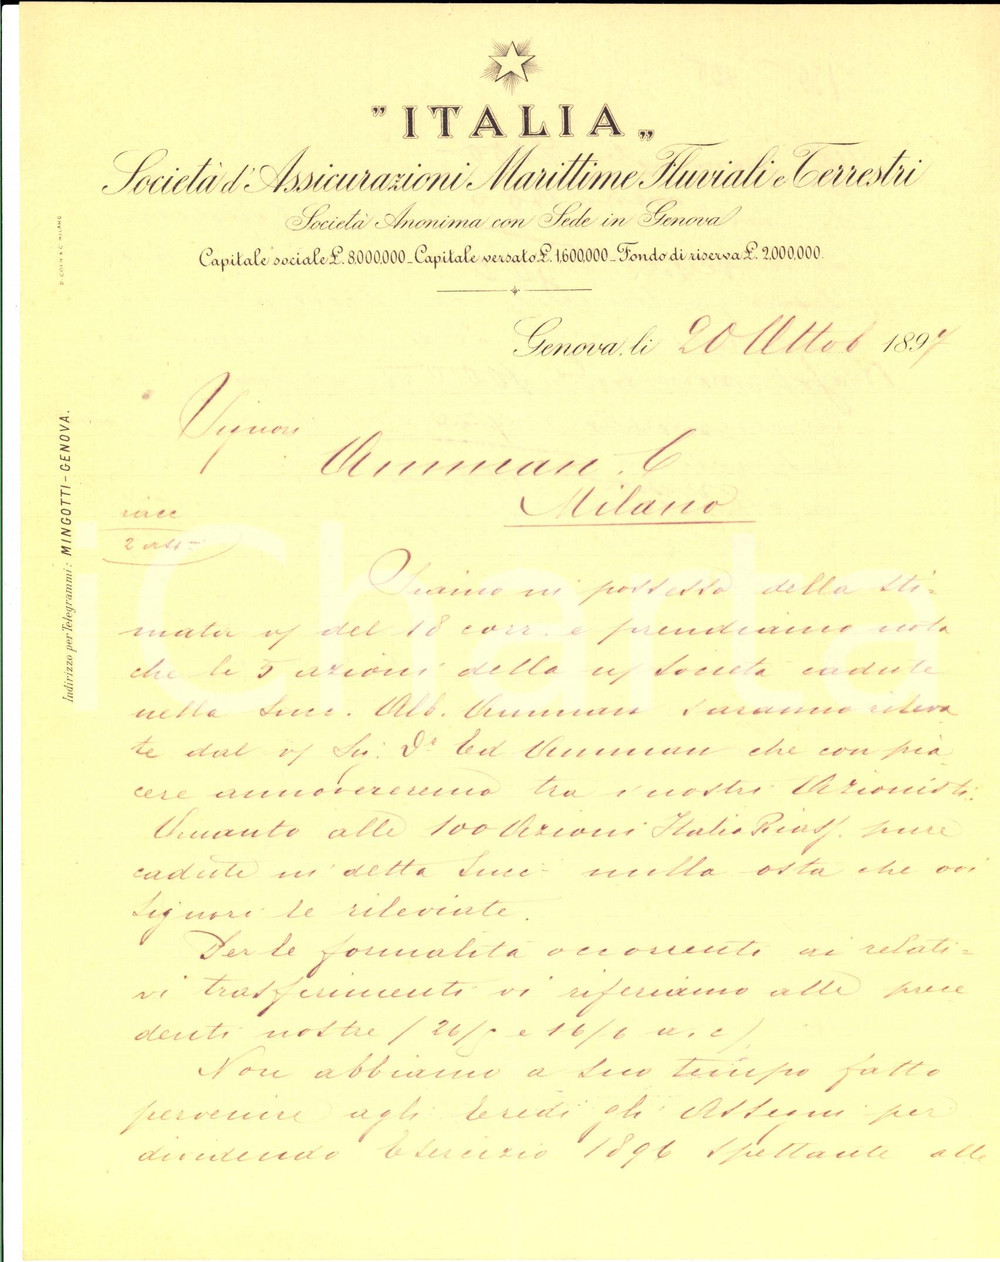 "ITALIA„
Società d'Assicurazioni Marittime Fluviali e Terrestri
Società Anonima con Sede in Genova
Capitale sociale £. 8.000,000 - Capitale versato £. 1,600,000 - Fondo di riserva £. 2,000,000.
Genova, li 20 Ottob 1897
Signori
Amman. C
Milano
racc
2 all
Siamo in possesso della sti-
mata v/ del 18 corr. e prendiamo nota
che le 5 azioni della n/ Società cadute
nella Succ. Alb. Amman saranno rileva
te dal v/ Sig. Dr Ed Amman che con pia
cere annovereremo tra i nostri Azionisti.
Quanto alle 100 Azioni Italia Riass. pure
cadute in detta Succ. nulla osta che voi
Signori le rileviate.
Per le formalità occorrenti ai relati-
vi trasferimenti vi riferiamo alle prece
denti nostre (26/5 e 16/6 a. c)
Noi abbiamo a suo tempo fatto
pervenire agli Eredi gli Assegni per
dividendo Esercizio 1896 spettante alle
Indirizzo per Telegrammi: MINGOTTI-GENOVA.
iCharta